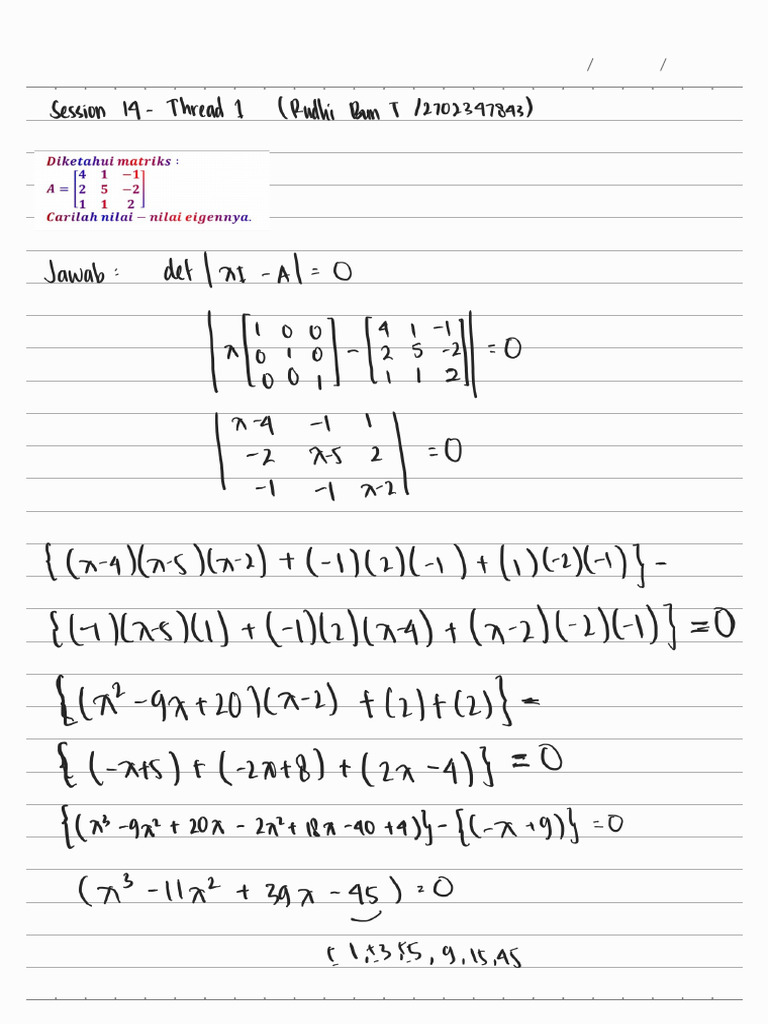 / /
Session 14 - Thread 1 (Rudhi Bam T /2702347843)
Diketahui matriks :
A = [4 1 −1
2 5 −2
1 1 2]
Carilah nilai − nilai eigennya.
Jawab : det |λI - A| = 0
|λ [1 0 0 0 1 0 0 0 1] - [4 1 -1 2 5 -2 1 1 2]| = 0
|λ-4 -1 1
-2 λ-5 2
-1 -1 λ-2| = 0
{(λ-4)(λ-5)(λ-2) + (-1)(2)(-1) + (1)(-2)(-1)} -
{(-1)(λ-5)(1) + (-1)(2)(λ-4) + (λ-2)(-2)(-1)} = 0
{(λ² - 9λ + 20)(λ-2) + (2) + (2)} -
{(-λ+5) + (-2λ+8) + (2λ-4)} = 0
{(λ³ - 9λ² + 20λ - 2λ² + 18λ - 40 + 4)} - {(-λ + 9)} = 0
(λ³ - 11λ² + 39λ - 45) = 0
± 1, ±3, ±5, 9, 15, 45